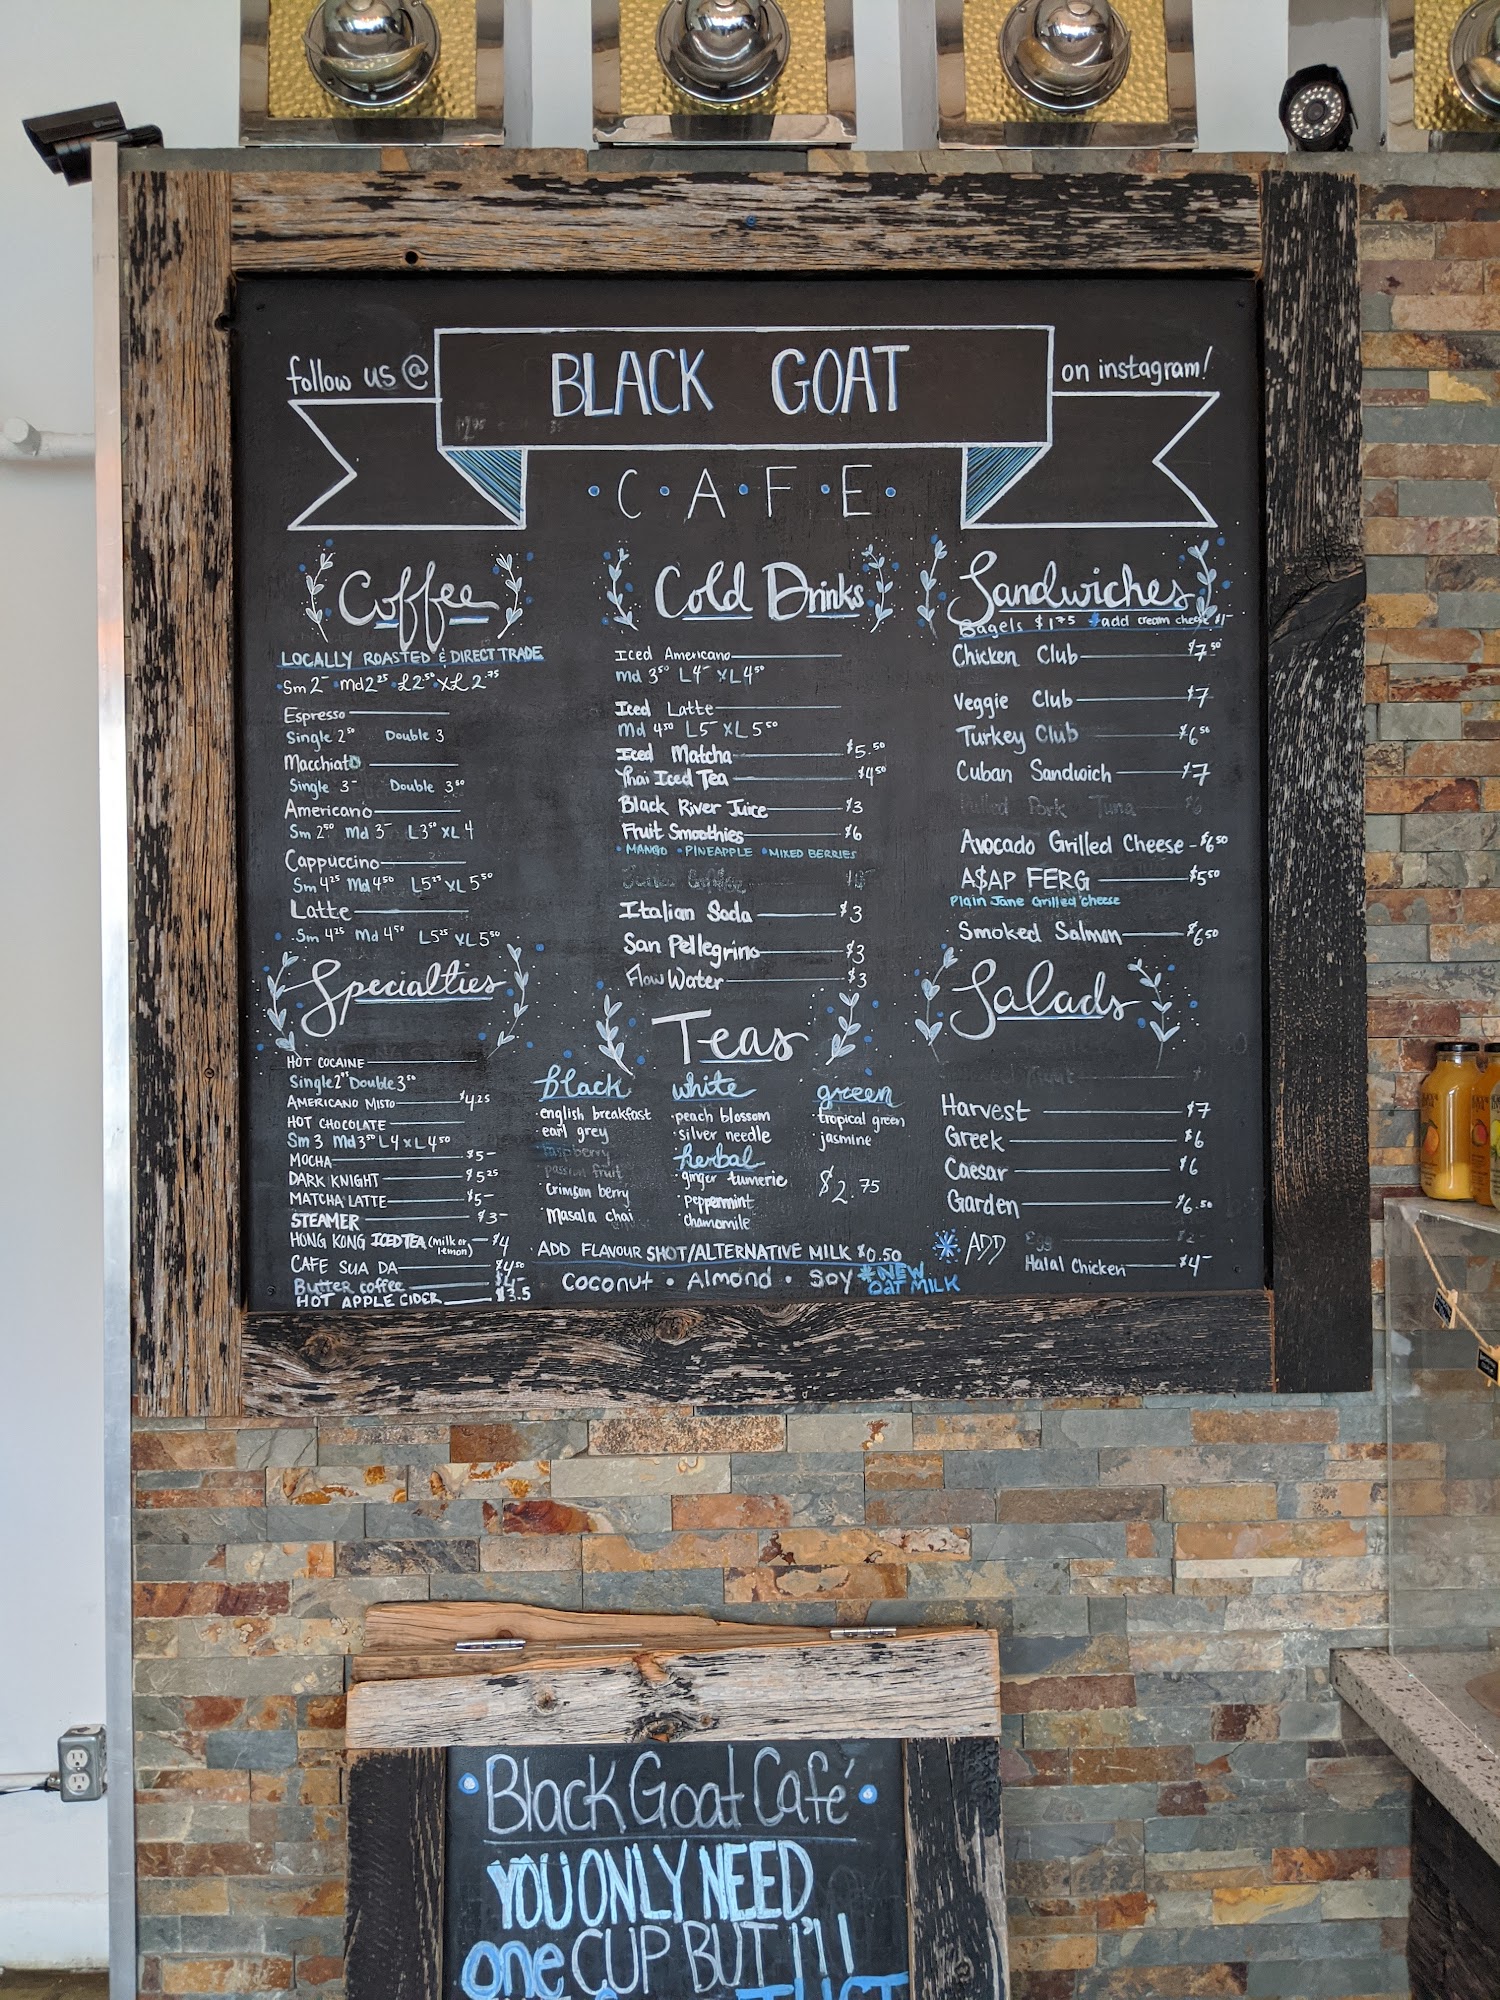 follow us @
BLACK GOAT
on instagram!
C·A·F·E
Coffee
LOCALLY ROASTED & DIRECT TRADE
Sm 2- md 2.25 L 2.50 XL 2.75
Espresso
Single 2.50 Double 3
Macchiato
Single 3- Double 3.50
Americano
Sm 2.50 Md 3- L 3.50 XL 4
Cappuccino
Sm 4.25 Md 4.50 L 5.25 XL 5.50
Latte
Sm 4.25 Md 4.50 L 5.25 XL 5.50
Specialties
HOT COCAINE
Single 2.95 Double 3.50
AMERICANO MISTO $4.25
HOT CHOCOLATE
Sm 3 Md 3.50 L 4 XL 4.50
MOCHA $5-
DARK KNIGHT $5.25
MATCHA LATTE $5-
STEAMER $3-
HONG KONG ICED TEA (milk or lemon) $4
CAFE SUA DA $4.50
Butter coffee $4-
HOT APPLE CIDER $3.5
Cold Drinks
Iced Americano
md 3.50 L 4- XL 4.50
Iced Latte
Md 4.50 L 5- XL 5.50
Iced Matcha $5.50
Thai Iced Tea $4.50
Black River Juice $3
Fruit Smoothies $6
• MANGO • PINEAPPLE • MIXED BERRIES
Italian Soda $3
San Pellegrino $3
Flow Water $3
Teas
black
·english breakfast
earl grey
raspberry
passion fruit
Crimson berry
Masala chai
white
·peach blossom
·silver needle
herbal
ginger tumeric
·peppermint
chamomile
green
tropical green
jasmine
$2.75
ADD FLAVOUR SHOT/ALTERNATIVE MILK $0.50
Coconut • Almond • Soy *NEW OAT MILK
Sandwiches
Bagels $1.75 +add cream cheese $1-
Chicken Club $7.50
Veggie Club $7
Turkey Club $6.50
Cuban Sandwich $7
Pulled Pork Tuna $6
Avocado Grilled Cheese - $6.50
A$AP FERG $5.50
Plain Jane Grilled Cheese
Smoked Salmon $6.50
Salads
Harvest $7
Greek $6
Caesar $6
Garden $6.50
ADD Egg $2-
Halal Chicken $4-
Black Goat Café
YOU ONLY NEED
one CUP BUT I'll